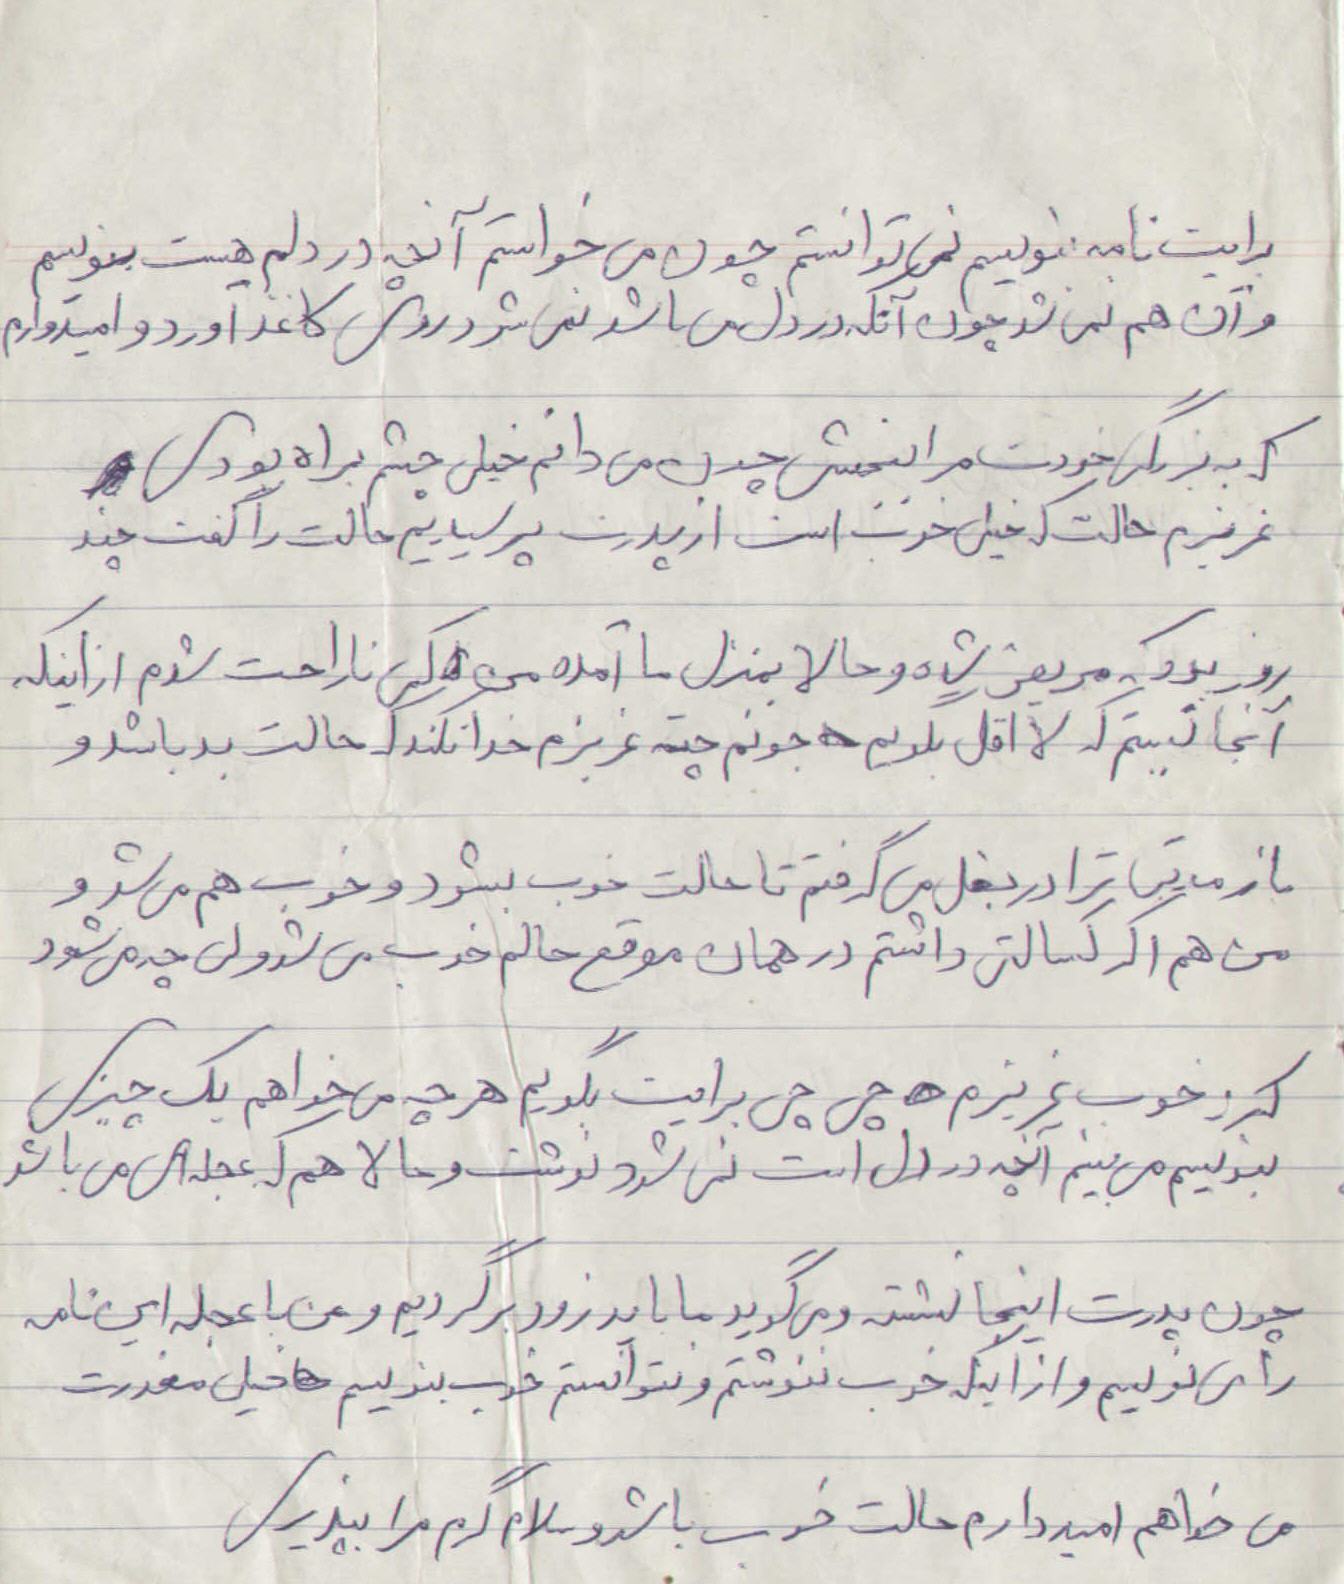 برایت نامه بنویسم نمی توانستم چون می خواستم آنچه در دلم هست بنویسم
و آن هم نمی شد چون آنکه در دل می باشد نمی شود روی کاغذ آورد و امیدوارم
که به بزرگی خودت مرا ببخشی چون می دانم خیلی چشم براه بودی
عزیزم حالت که خیلی خوب است از پدرت پرسیدیم حالت را گفت چند
روز بود که مریض شده و حالا بمنزل ما آمده کمی ناراحت شدم از اینکه
آنجا نیستم که لااقل بگویم جونم چته عزیزم خدا نکند که حالت بد باشد و
باز مدتی ترا در بغل می گرفتم تا حالت خوب بشود و خوب هم می شد و
من هم اگر کسالتی داشتم در همان موقع حالم خوب می شد ولی چه می شود
کرد خوب عزیزم چی چی برایت بگویم هر چه می خواهم یک چیزی
بنویسم می بینم آنچه در دل است نمی شود نوشت و حالا هم که عجله ای می باشد
چون پدرت اینجا نشسته و می گوید ما باید زود برگردیم و من با عجله این نامه
را می نویسم و از اینکه خوب ننوشتم و نتوانستم خوب بنویسم خیلی معذرت
می خواهم امیدوارم حالت خوب باشد و سلام گرم مرا بپذیری